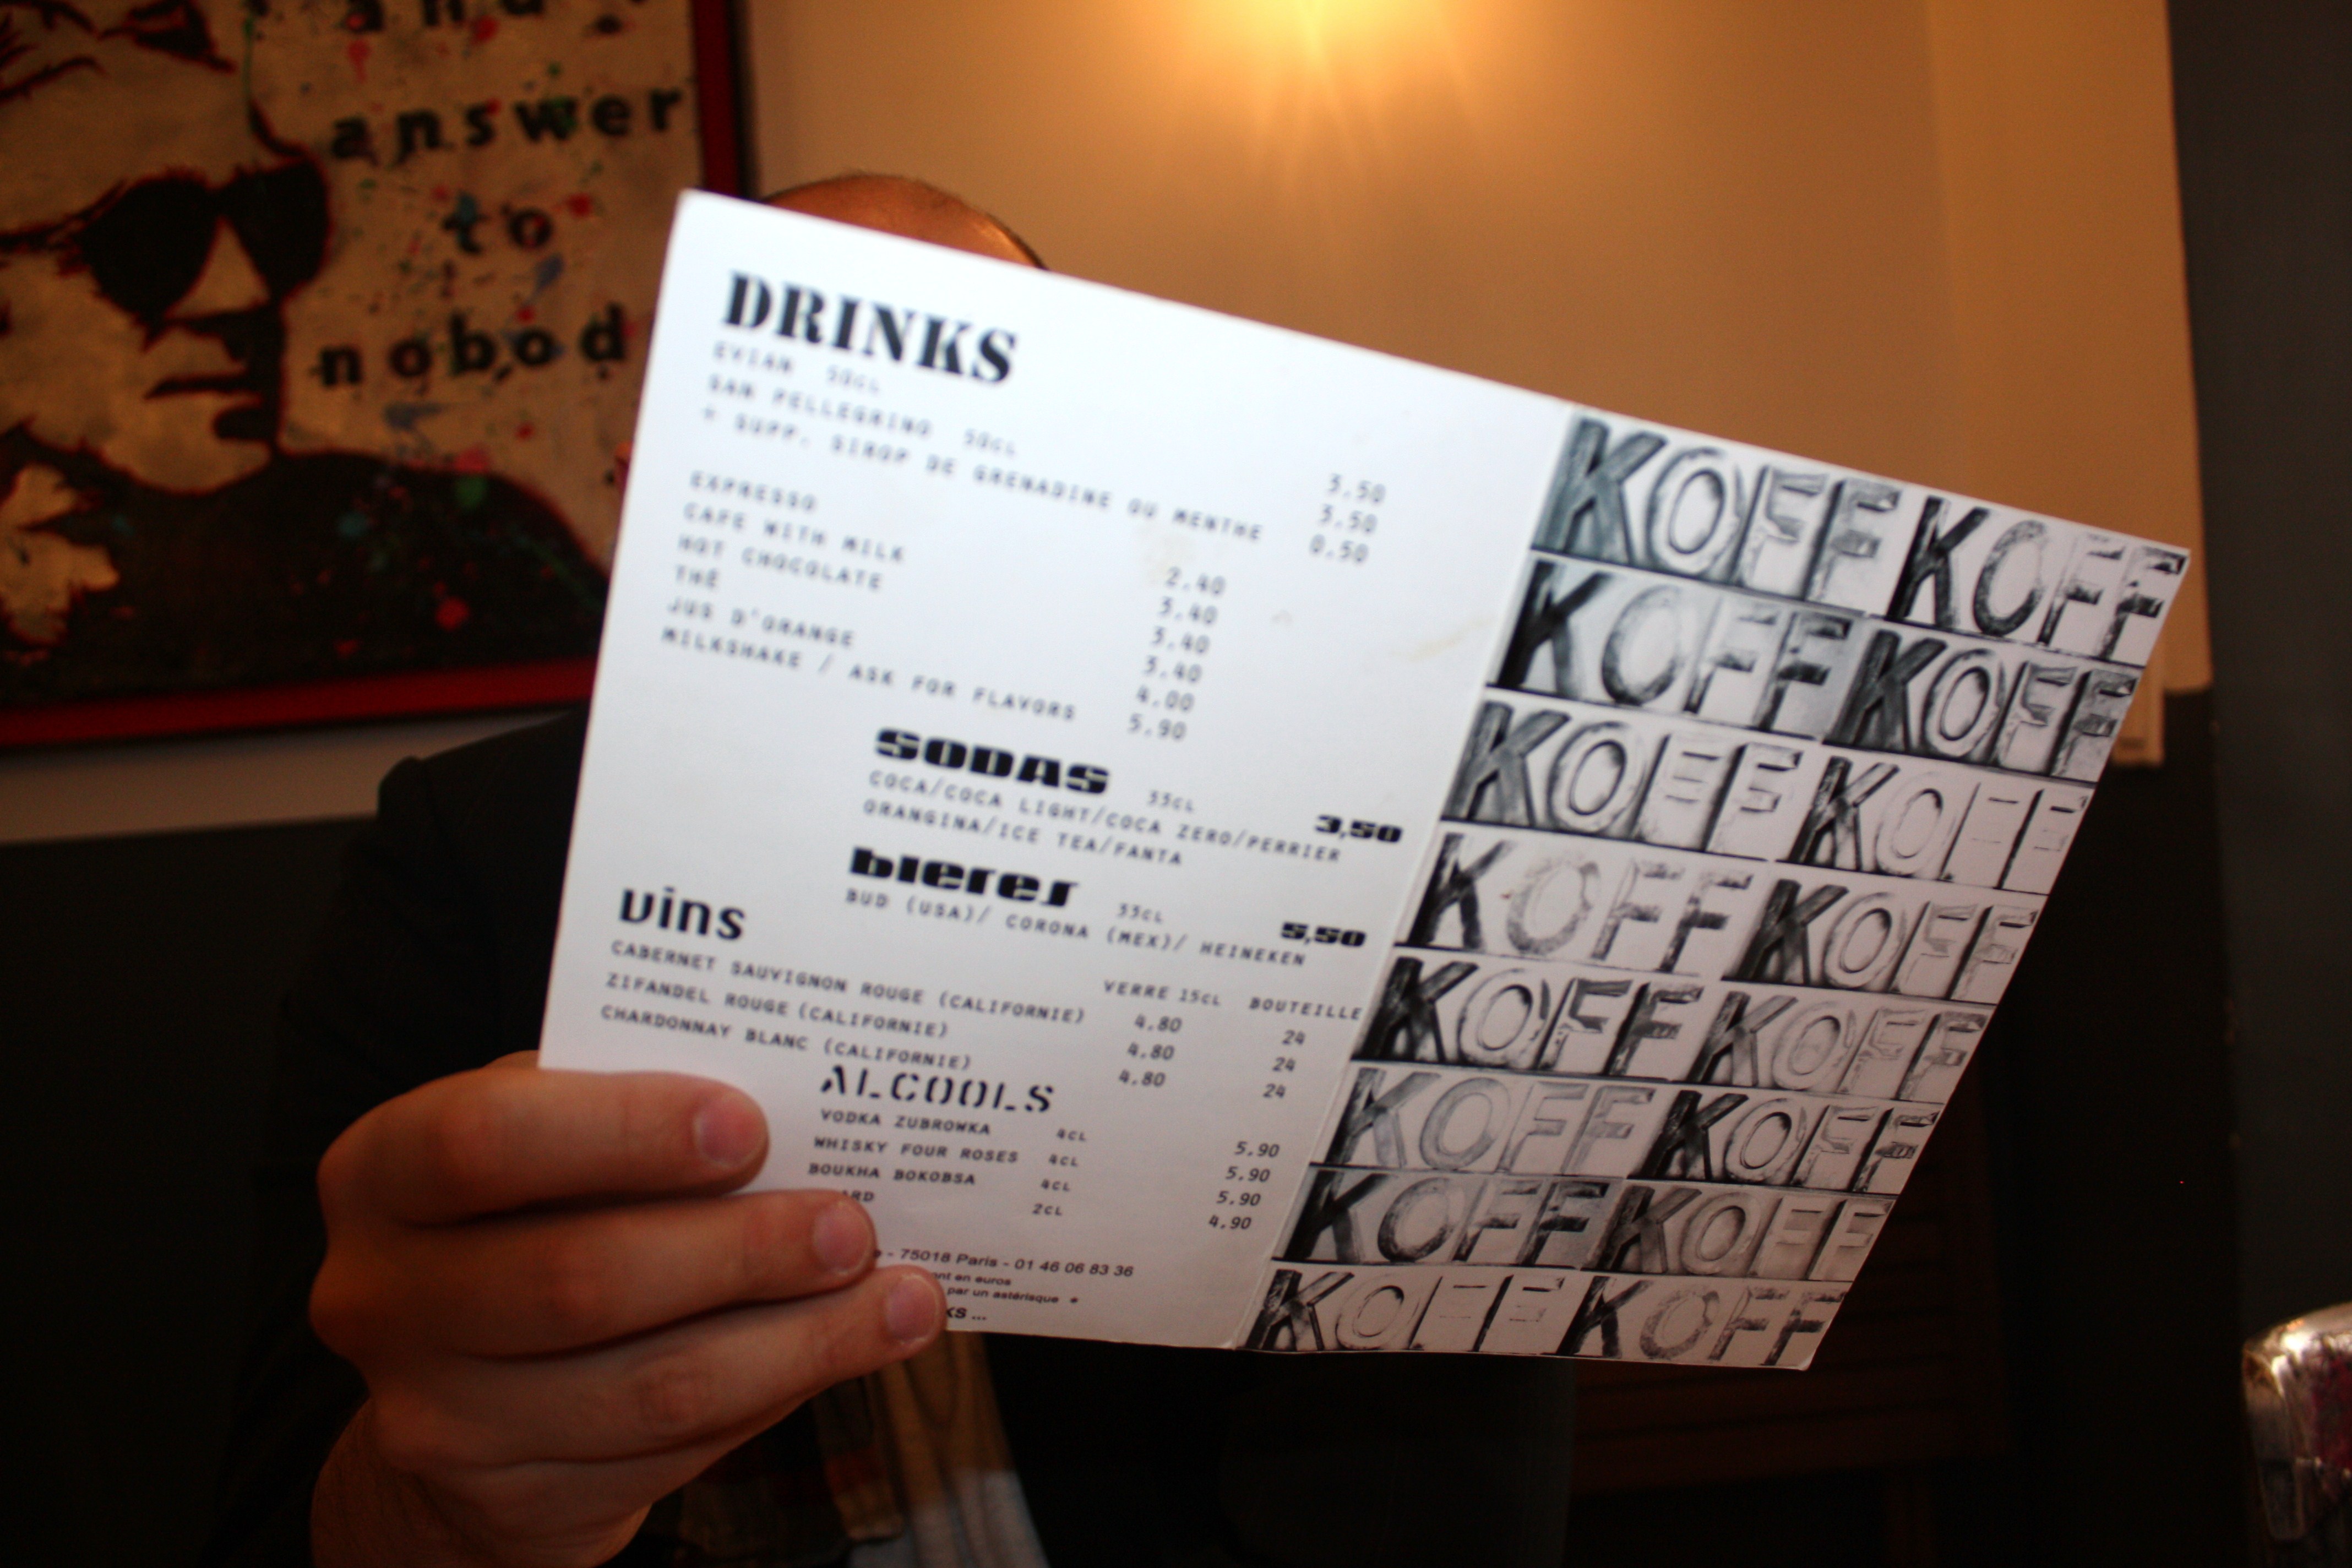 and
answer
to
nobod
DRINKS
EVIAN 50CL 3.50
SAN PELLEGRINO 50CL 3.50
+ SUPP. SIROP DE GRENADINE OU MENTHE 0.50
EXPRESSO 2.40
CAFE WITH MILK 3.40
HOT CHOCOLATE 3.40
THÉ 3.40
JUS D'ORANGE 4.00
MILKSHAKE / ASK FOR FLAVORS 5.90
SODAS 33CL 3,50
COCA/COCA LIGHT/COCA ZERO/PERRIER
ORANGINA/ICE TEA/FANTA
bieres 33CL 5,50
BUD (USA)/ CORONA (MEX)/ HEINEKEN
vins
VERRE 15CL BOUTEILLE
CABERNET SAUVIGNON ROUGE (CALIFORNIE) 4.80 24
ZIFANDEL ROUGE (CALIFORNIE) 4.80 24
CHARDONNAY BLANC (CALIFORNIE) 4.80 24
ALCOOLS
VODKA ZUBROWKA 4CL 5.90
WHISKY FOUR ROSES 4CL 5.90
BOUKHA BOKOBSA 4CL 5.90
ARD 2CL 4.90
e - 75018 Paris - 01 46 06 83 36
ont en euros
par un astérisque *
KS ...
KOFF KOFF
KOFF KOFF
KOFF KOFF
KOFF KOFF
KOFF KOFF
KOFF KOFF
KOFF KOFF
KOFF KOFF